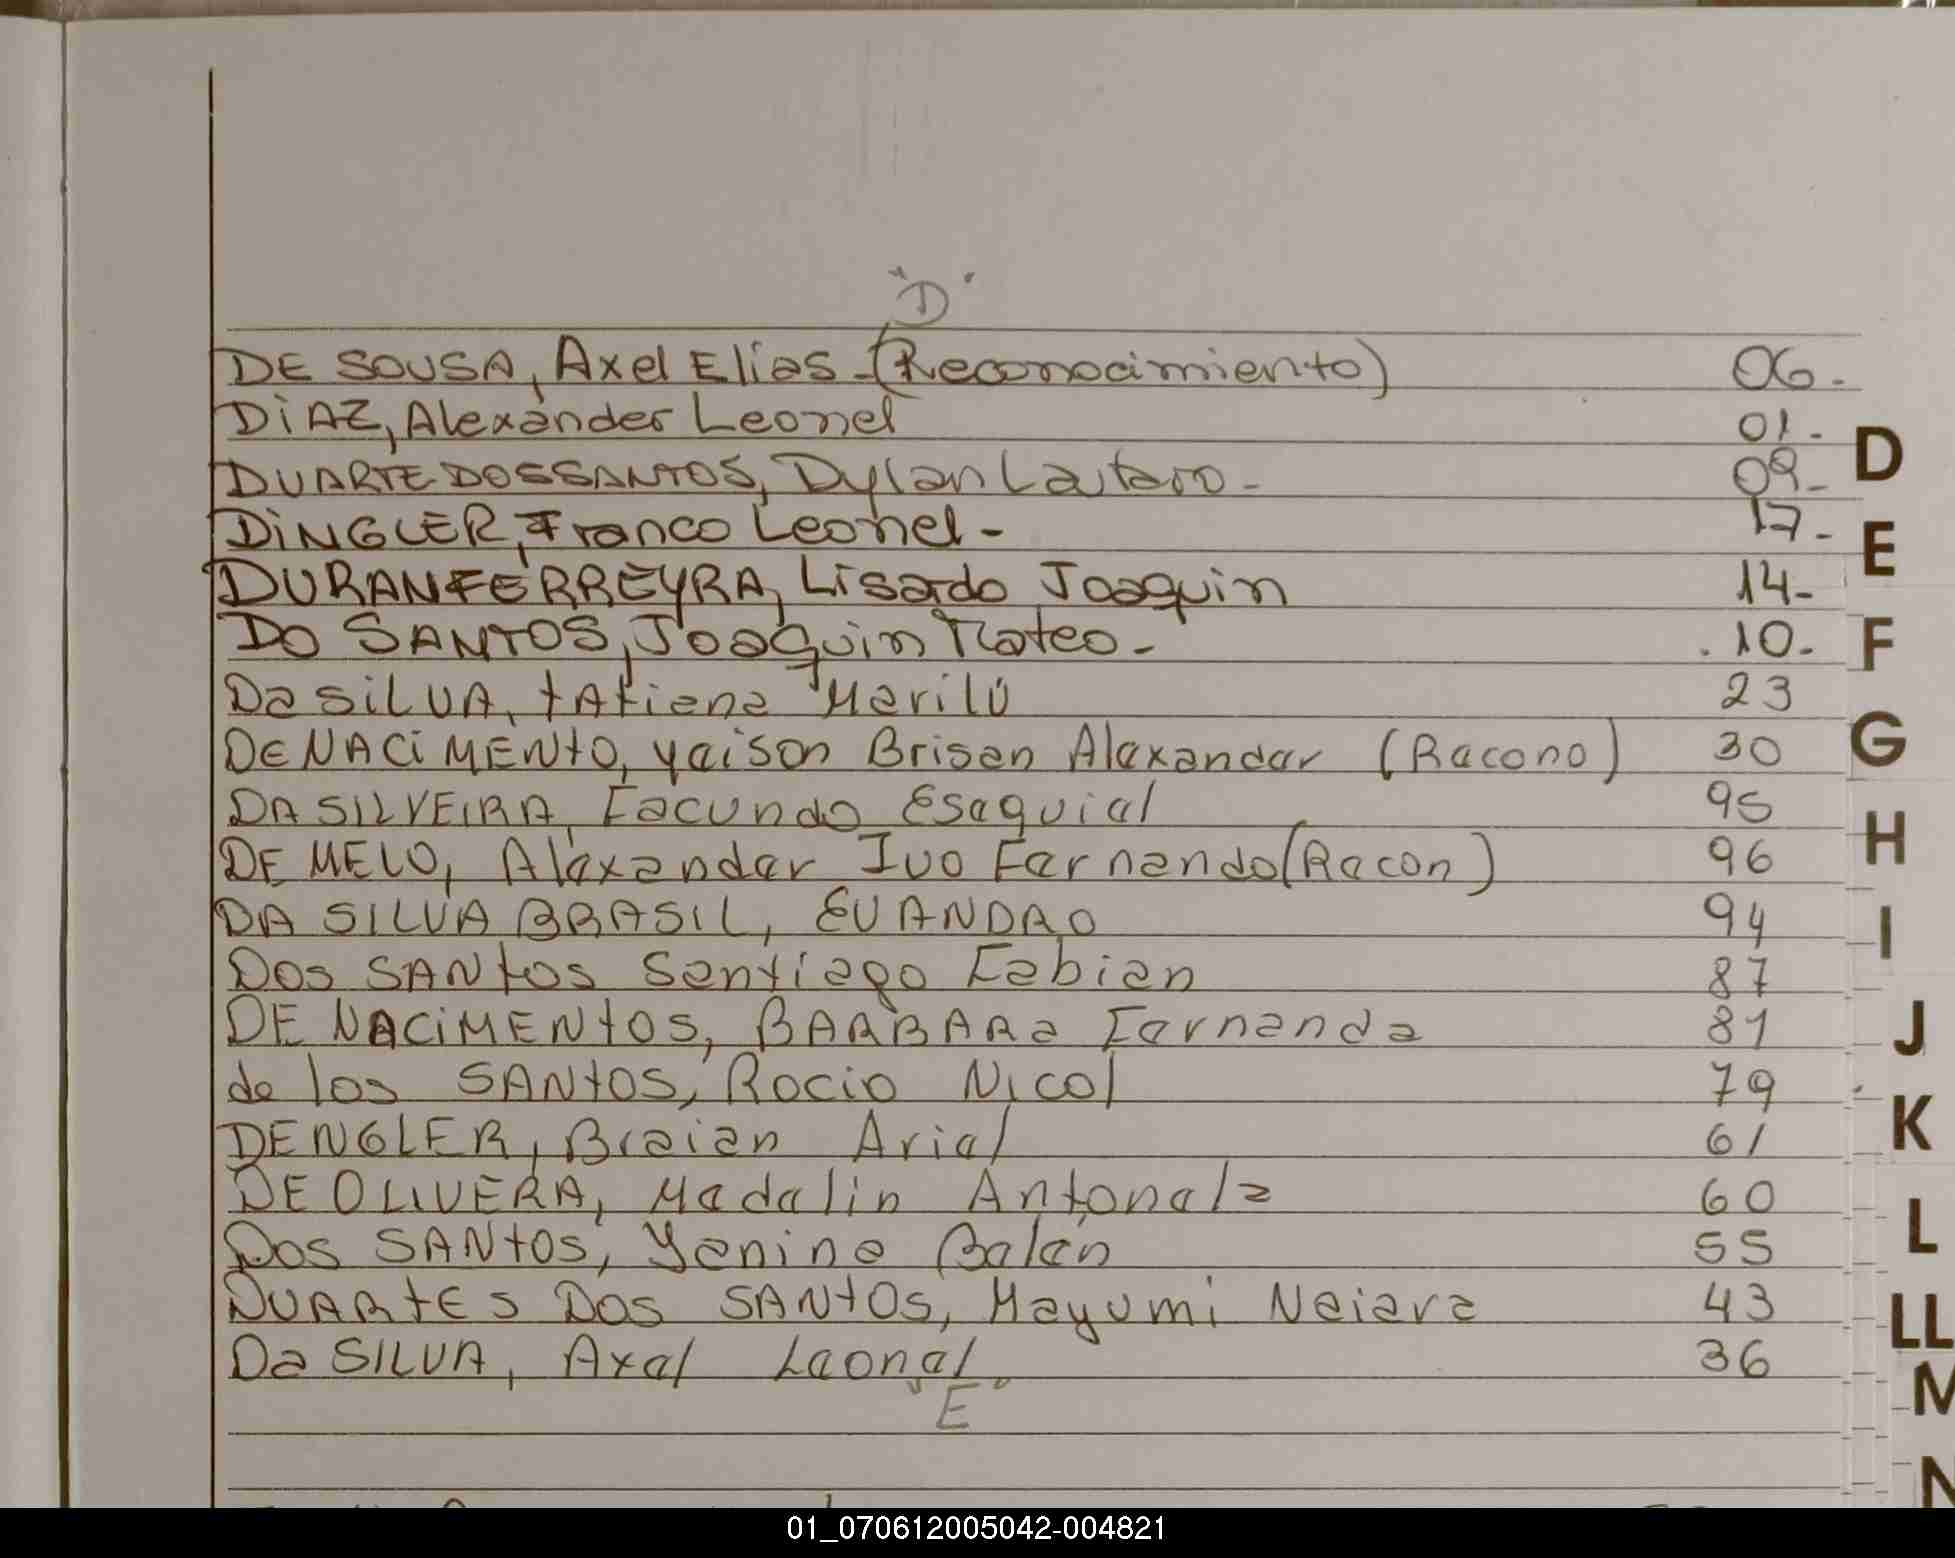 "D"
DE SOUSA, Axel Elias - (Reconocimiento) 06-
DiAZ, Alexander Leonel 01-
DUARTE DOS SANTOS, Dylan Lautaro - 09-
DiNGLER, Franco Leonel - 17-
DURAN FERREYRA, Lisardo Joaquin 14-
DO SANTOS, Joaquin Mateo - .10-
Da SiLVA, tAtiana Marilú 23
DE NACiMENtO, yeison Brisan Alexander (Recono) 30
DA SILVEIRA, Facundo Esequiel 95
DE MELO, Alexander Ivo Fernando (Recon) 96
DA SILVA BRASIL, EVANDRO 94
Dos SANtos Santiago Fabian 87
DE NACiMENtOS, BARBARa Fernanda 81
de los SANtOS, Rocio Nicol 79
DENGLER, Braian Ariel 61
DE OLIVERA, Madelin Antonela 60
Dos SANtOS, Yanina Belén 55
DUARtES DOS SANtOS, Mayumi Naiara 43
Da SILVA, Axel Leonel 36
"E"
D
E
F
G
H
I
J
K
L
LL
M
N
01_070612005042-004821